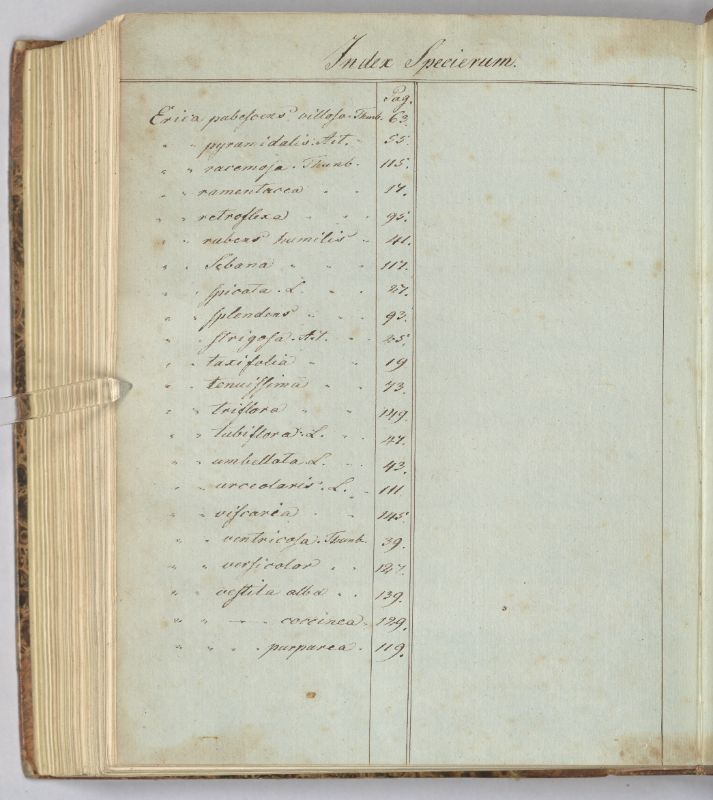 Index Specierum.
Pag.
Erica pubescens villosa. Thunb. 63.
" " pyramidalis. Ait. - 55.
" " racemosa. Thunb. 115.
" " ramentacea - 17.
" " retroflexa - - - 95.
" " rubens humilis - 41.
" " Sebana - - - 117.
" " spicata. L. - - 27.
" " splendens - - - 93.
" " strigosa. Ait. - - 25.
" " taxifolia - - 19
" " tenuissima - - 73.
" " triflora - - - 149.
" " tubiflora. L. - - 47.
" " umbellata. L. - - 43.
" " urceolaris. L. - 111.
" " viscaria - - 145.
" " ventricosa. Thunb. 39.
" " versicolor - - 127.
" " vestita alba - - 139.
" " — coccinea - 129.
" " " " purpurea - 119.